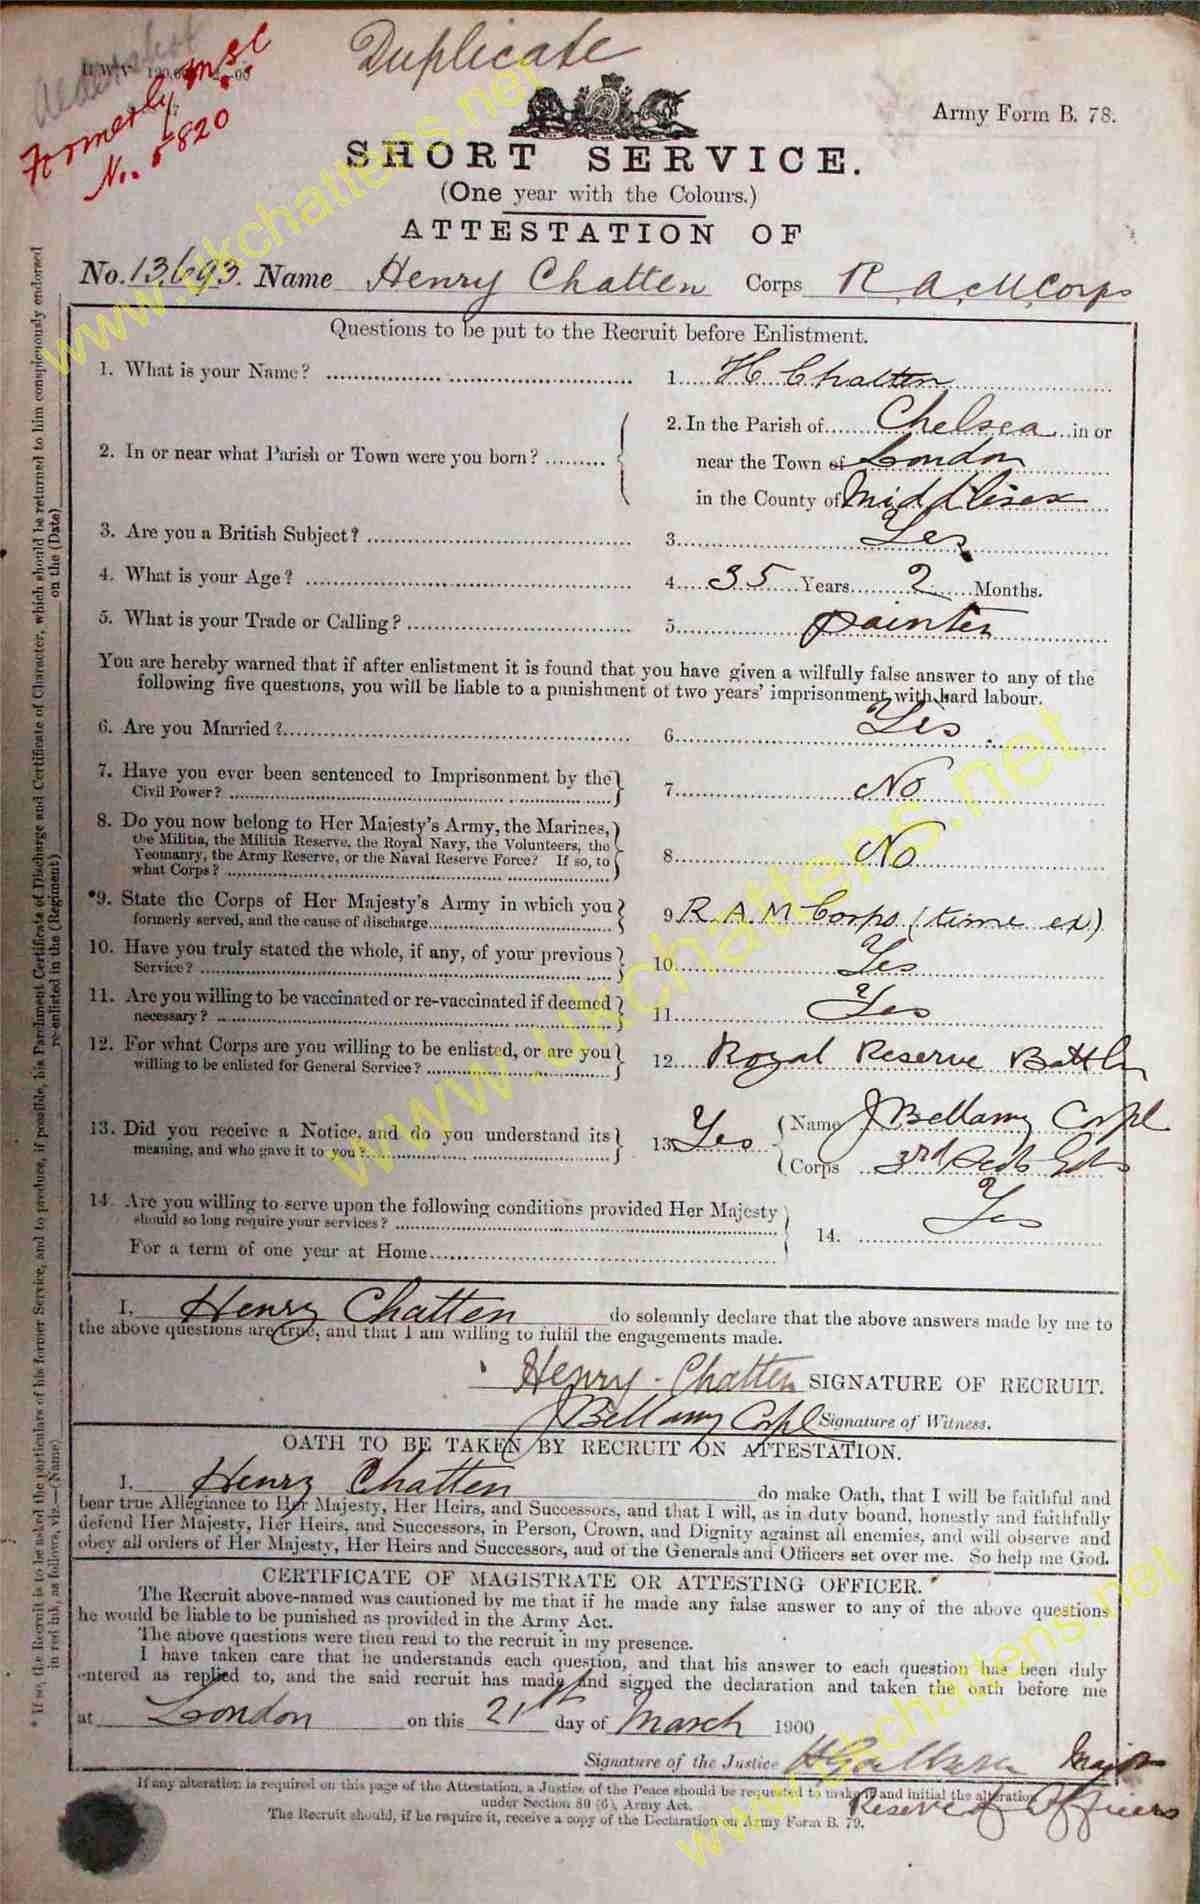 Duplicate
Aldershot
Formerly MSC
No. 5820
Army Form B. 78.
SHORT SERVICE.
(One year with the Colours.)
ATTESTATION OF
No. 13693. Name Henry Chatten Corps R. A. M. Corps
Questions to be put to the Recruit before Enlistment.
1. What is your Name? 1. H Chatten
2. In or near what Parish or Town were you born? 2. In the Parish of Chelsea in or
near the Town of London
in the County of Middlesex
3. Are you a British Subject? 3. Yes
4. What is your Age? 4. 35 Years 2 Months.
5. What is your Trade or Calling? 5. painter
You are hereby warned that if after enlistment it is found that you have given a wilfully false answer to any of the
following five questions, you will be liable to a punishment of two years' imprisonment with hard labour.
6. Are you Married? 6. Yes
7. Have you ever been sentenced to Imprisonment by the
Civil Power? 7. No
8. Do you now belong to Her Majesty's Army, the Marines,
the Militia, the Militia Reserve, the Royal Navy, the Volunteers, the
Yeomanry, the Army Reserve, or the Naval Reserve Force? If so, to
what Corps? 8. No
*9. State the Corps of Her Majesty's Army in which you
formerly served, and the cause of discharge 9. R A M Corps (time ex)
10. Have you truly stated the whole, if any, of your previous
Service? 10. Yes
11. Are you willing to be vaccinated or re-vaccinated if deemed
necessary? 11. Yes
12. For what Corps are you willing to be enlisted, or are you
willing to be enlisted for General Service? 12. Royal Reserve Battln
13. Did you receive a Notice, and do you understand its
meaning, and who gave it to you? 13. Yes Name J Bellamy Corpl
Corps 3rd Scots Gds
14. Are you willing to serve upon the following conditions provided Her Majesty
should so long require your services? 14. Yes
For a term of one year at Home
I, Henry Chatten do solemnly declare that the above answers made by me to
the above questions are true, and that I am willing to fulfil the engagements made.
Henry Chatten SIGNATURE OF RECRUIT.
J Bellamy Corpl Signature of Witness.
OATH TO BE TAKEN BY RECRUIT ON ATTESTATION.
I, Henry Chatten do make Oath, that I will be faithful and
bear true Allegiance to Her Majesty, Her Heirs, and Successors, and that I will, as in duty bound, honestly and faithfully
defend Her Majesty, Her Heirs, and Successors, in Person, Crown, and Dignity against all enemies, and will observe and
obey all orders of Her Majesty, Her Heirs and Successors, and of the Generals and Officers set over me. So help me God.
CERTIFICATE OF MAGISTRATE OR ATTESTING OFFICER.
The Recruit above-named was cautioned by me that if he made any false answer to any of the above questions
he would be liable to be punished as provided in the Army Act.
The above questions were then read to the recruit in my presence.
I have taken care that he understands each question, and that his answer to each question has been duly
entered as replied to, and the said recruit has made and signed the declaration and taken the oath before me
at London on this 21st day of March 1900
Signature of the Justice Major
Reserve of Officers
If any alteration is required on this page of the Attestation, a Justice of the Peace should be requested to make it and initial the alteration
under Section 80 (6), Army Act.
The Recruit should, if he require it, receive a copy of the Declaration on Army Form B. 79.
* If so, the Recruit is to be asked the particulars of his former Service, and to produce, if possible, his Parchment Certificate of Discharge and Certificate of Character, which should be returned to him conspicuously endorsed
in red ink, as follows, viz.—(Name) re-enlisted in the (Regiment) on the (Date)
www.ukchattens.net
www.ukchattens.net
www.ukchattens.net